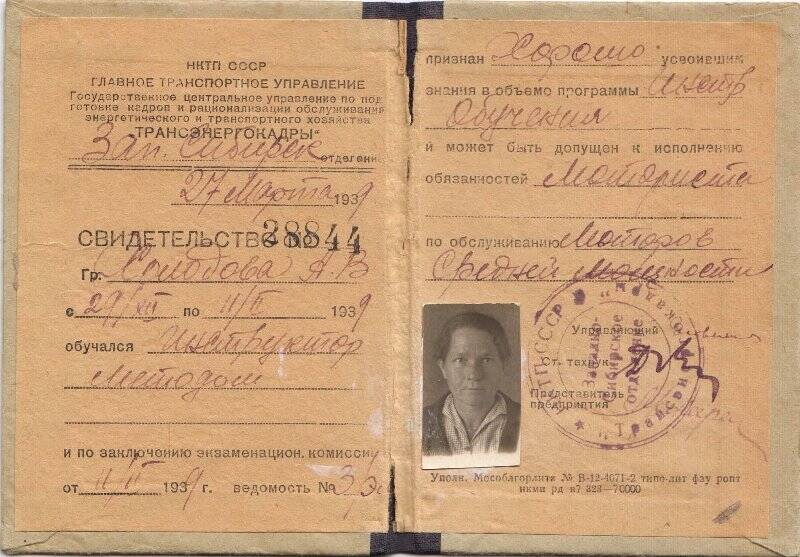 НКТП СССР
ГЛАВНОЕ ТРАНСПОРТНОЕ УПРАВЛЕНИЕ
Государственное центральное управление по под
готовке кадров и рационализации обслуживания
энергетического и транспортного хозяйства
"ТРАНСЭНЕРГОКАДРЫ"
Зап. Сибирск отделени
27 Марта 1939
СВИДЕТЕЛЬСТВО № 38844
Гр. Холодова А. В
с 29/XII по 11/II 1939
обучался Инструктор
Методом
и по заключению экзаменацион. комисси
от 11/II 1939 г. ведомость №
признан Хорошо усвоившим
знания в объеме программы Инстр
Обучения
и может быть допущен к исполнению
обязанностей Моториста
по обслуживанию Моторов
Средней Мощности
Управляющий
Ст. техрук.
Представитель
предприятия
НКТП СССР
Западно-
Сибирское
отделение
Уполн. Мособлгорлита № В-12-4071-2 типо-лит фзу ропт
нкми рд в7 323—70000